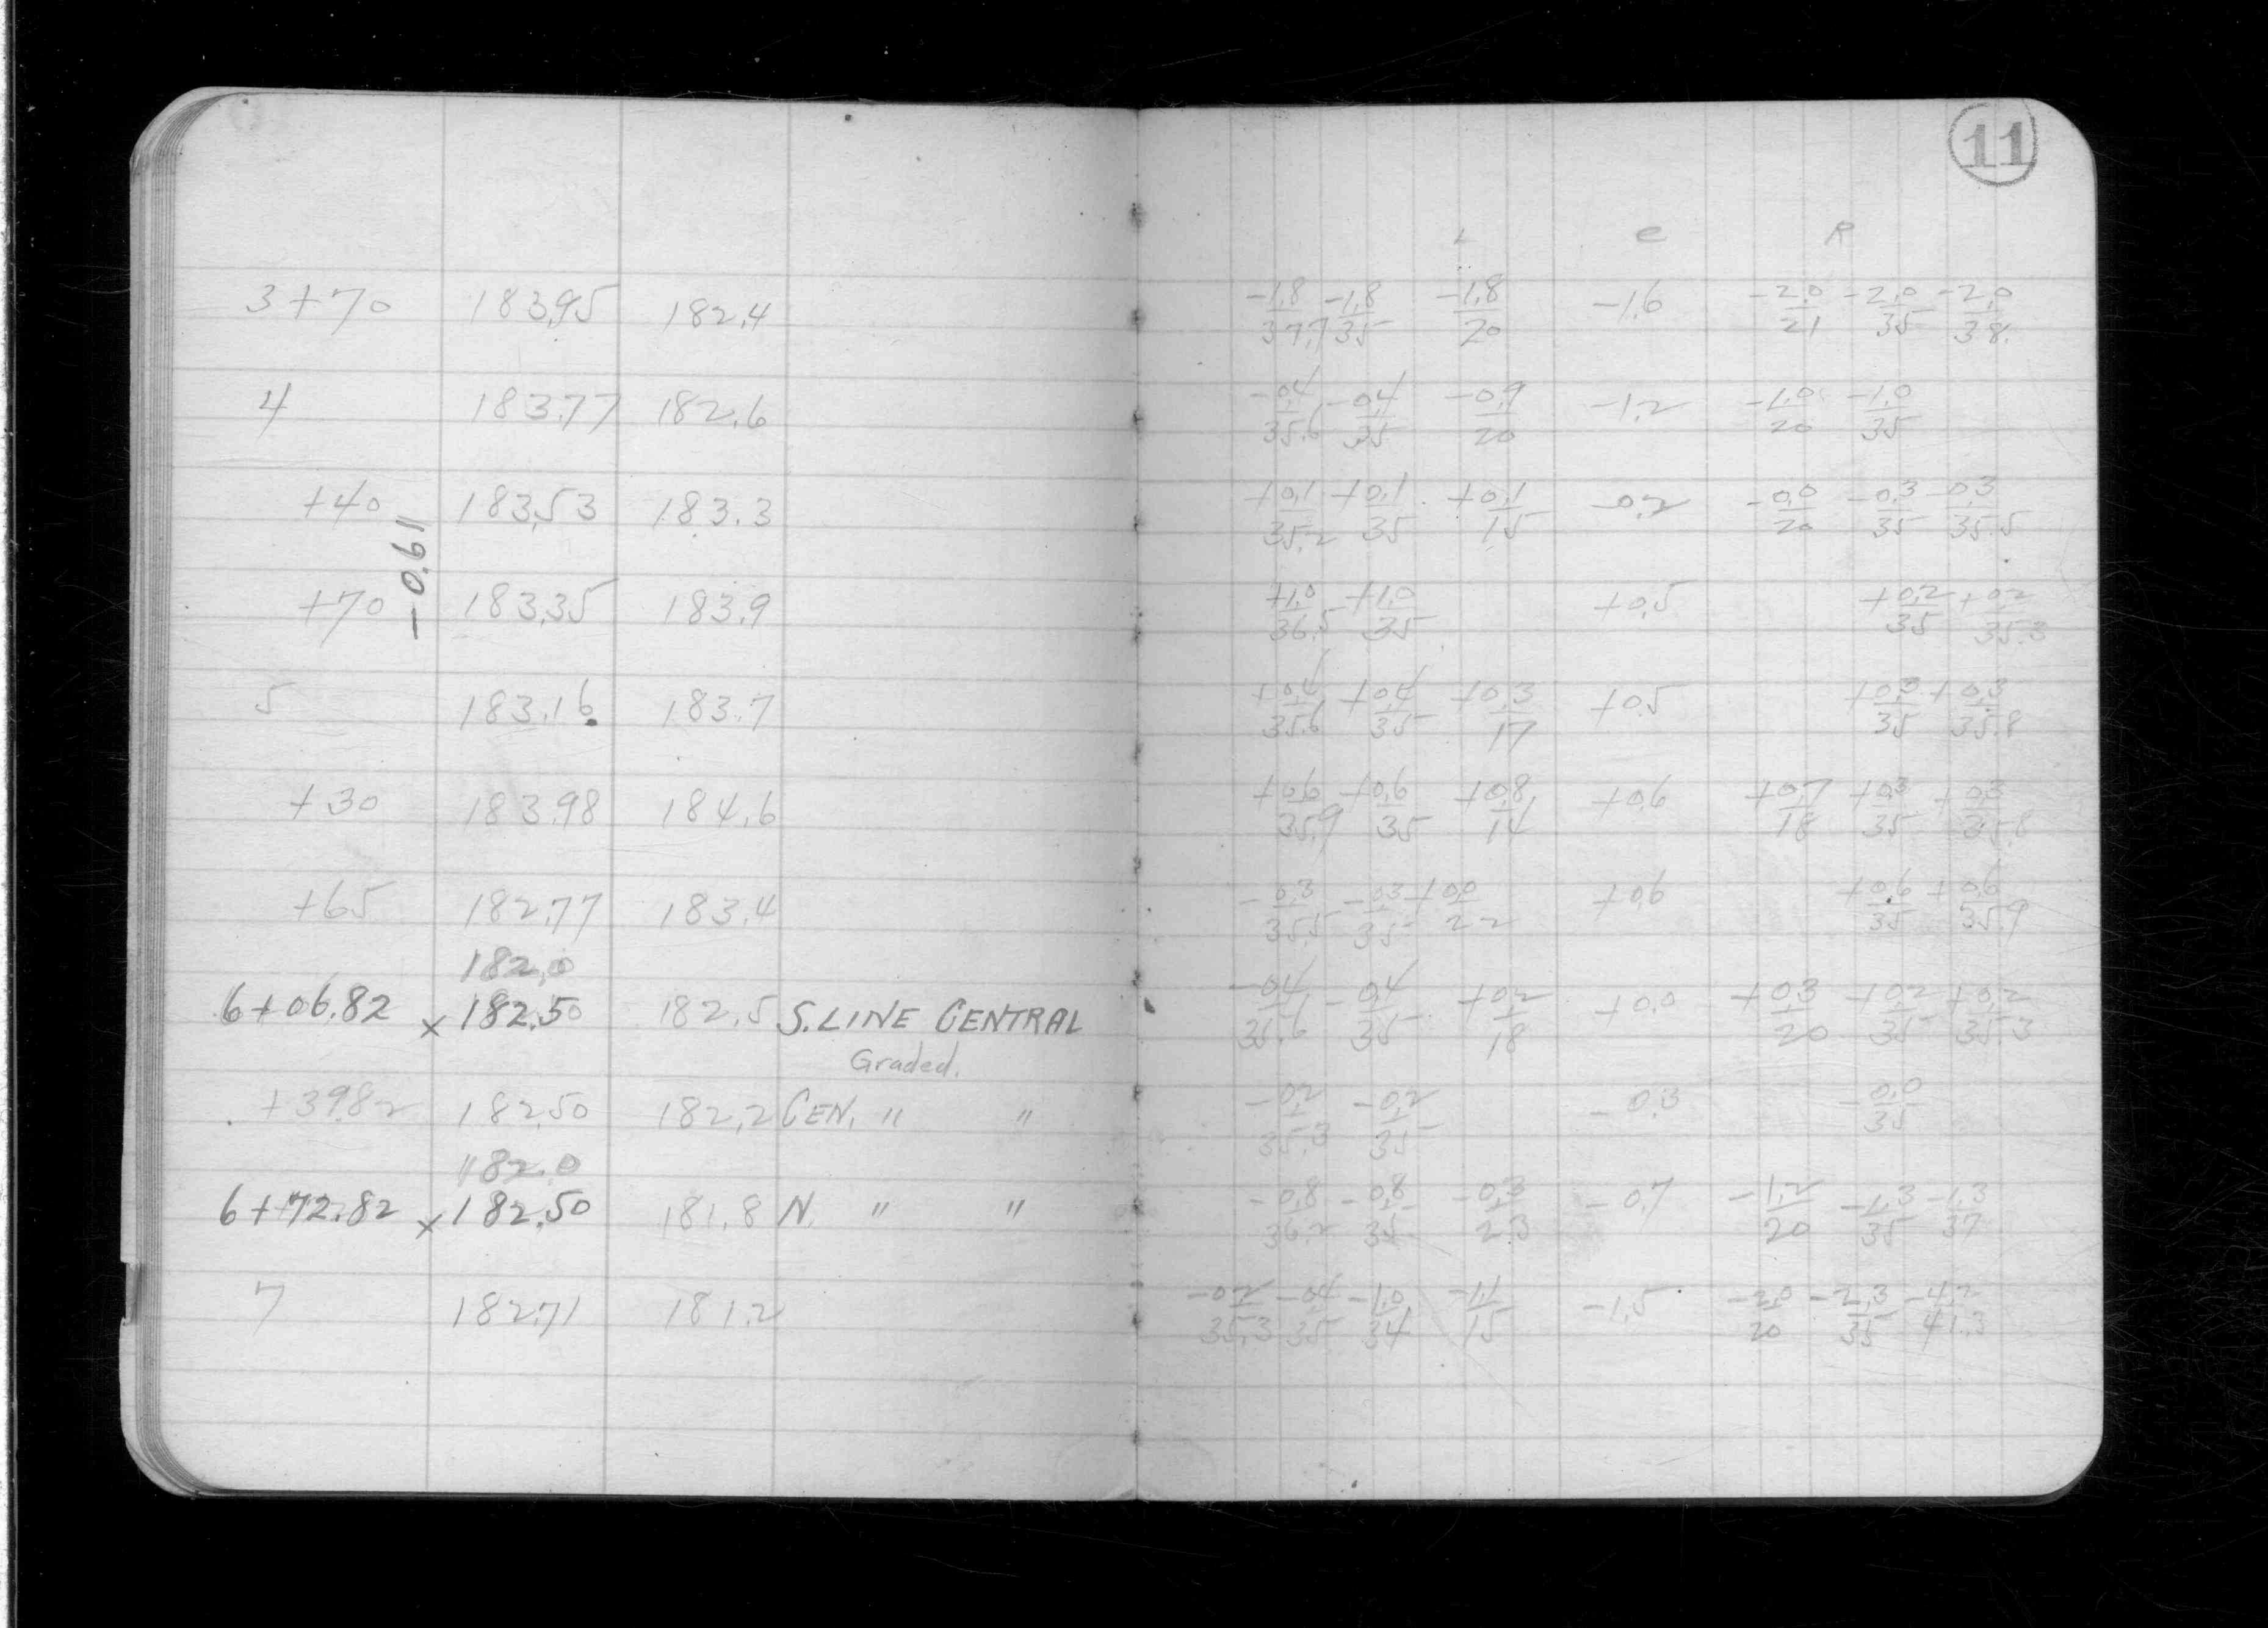 11
L C R
3+70 183.95 182.4 -1.8/37.7 -1.8/35 -1.8/20 -1.6 -2.0/21 -2.0/35 -2.0/38.
4 183.77 182.6 -0.4/35.6 -0.4/35 -0.9/20 -1.2 -1.0/20 -1.0/35
+40 183.53 183.3 +0.1/35.2 +0.1/35 +0.1/15 -0.2 -0.0/20 -0.3/35 -0.3/35.5
-0.61
+70 183.35 183.9 +1.0/36.5 +1.0/35 +0.5 +0.2/35 +0.2/35.3
5 183.16 183.7 +0.4/35.6 +0.4/35 +0.3/17 +0.5 +0.3/35 +0.3/35.8
+30 183.98 184.6 +0.6/35.9 +0.6/35 +0.8/14 +0.6 +0.7/18 +0.3/35 +0.3/35.8
+65 182.77 183.4 -0.3/35.5 -0.3/35 +0.0/22 +0.6 +0.6/35 +0.6/35.9
182.0
6+06.82 x 182.50 182.5 S. LINE CENTRAL -0.4/35.6 -0.4/35 +0.2/18 +0.0 +0.3/20 +0.2/35 +0.2/35.3
Graded.
+39.82 182.50 182.2 CEN. " " -0.2/35.3 -0.2/35 -0.3 -0.0/35
182.0
6+72.82 x 182.50 181.8 N. " " -0.8/36.2 -0.8/35 -0.3/23 -0.7 -1.2/20 -1.3/35 -1.3/37
7 182.71 181.2 -0.2/35.3 -0.4/35 -1.0/34 -1.1/15 -1.5 -2.0/20 -2.3/35 -4.2/41.3